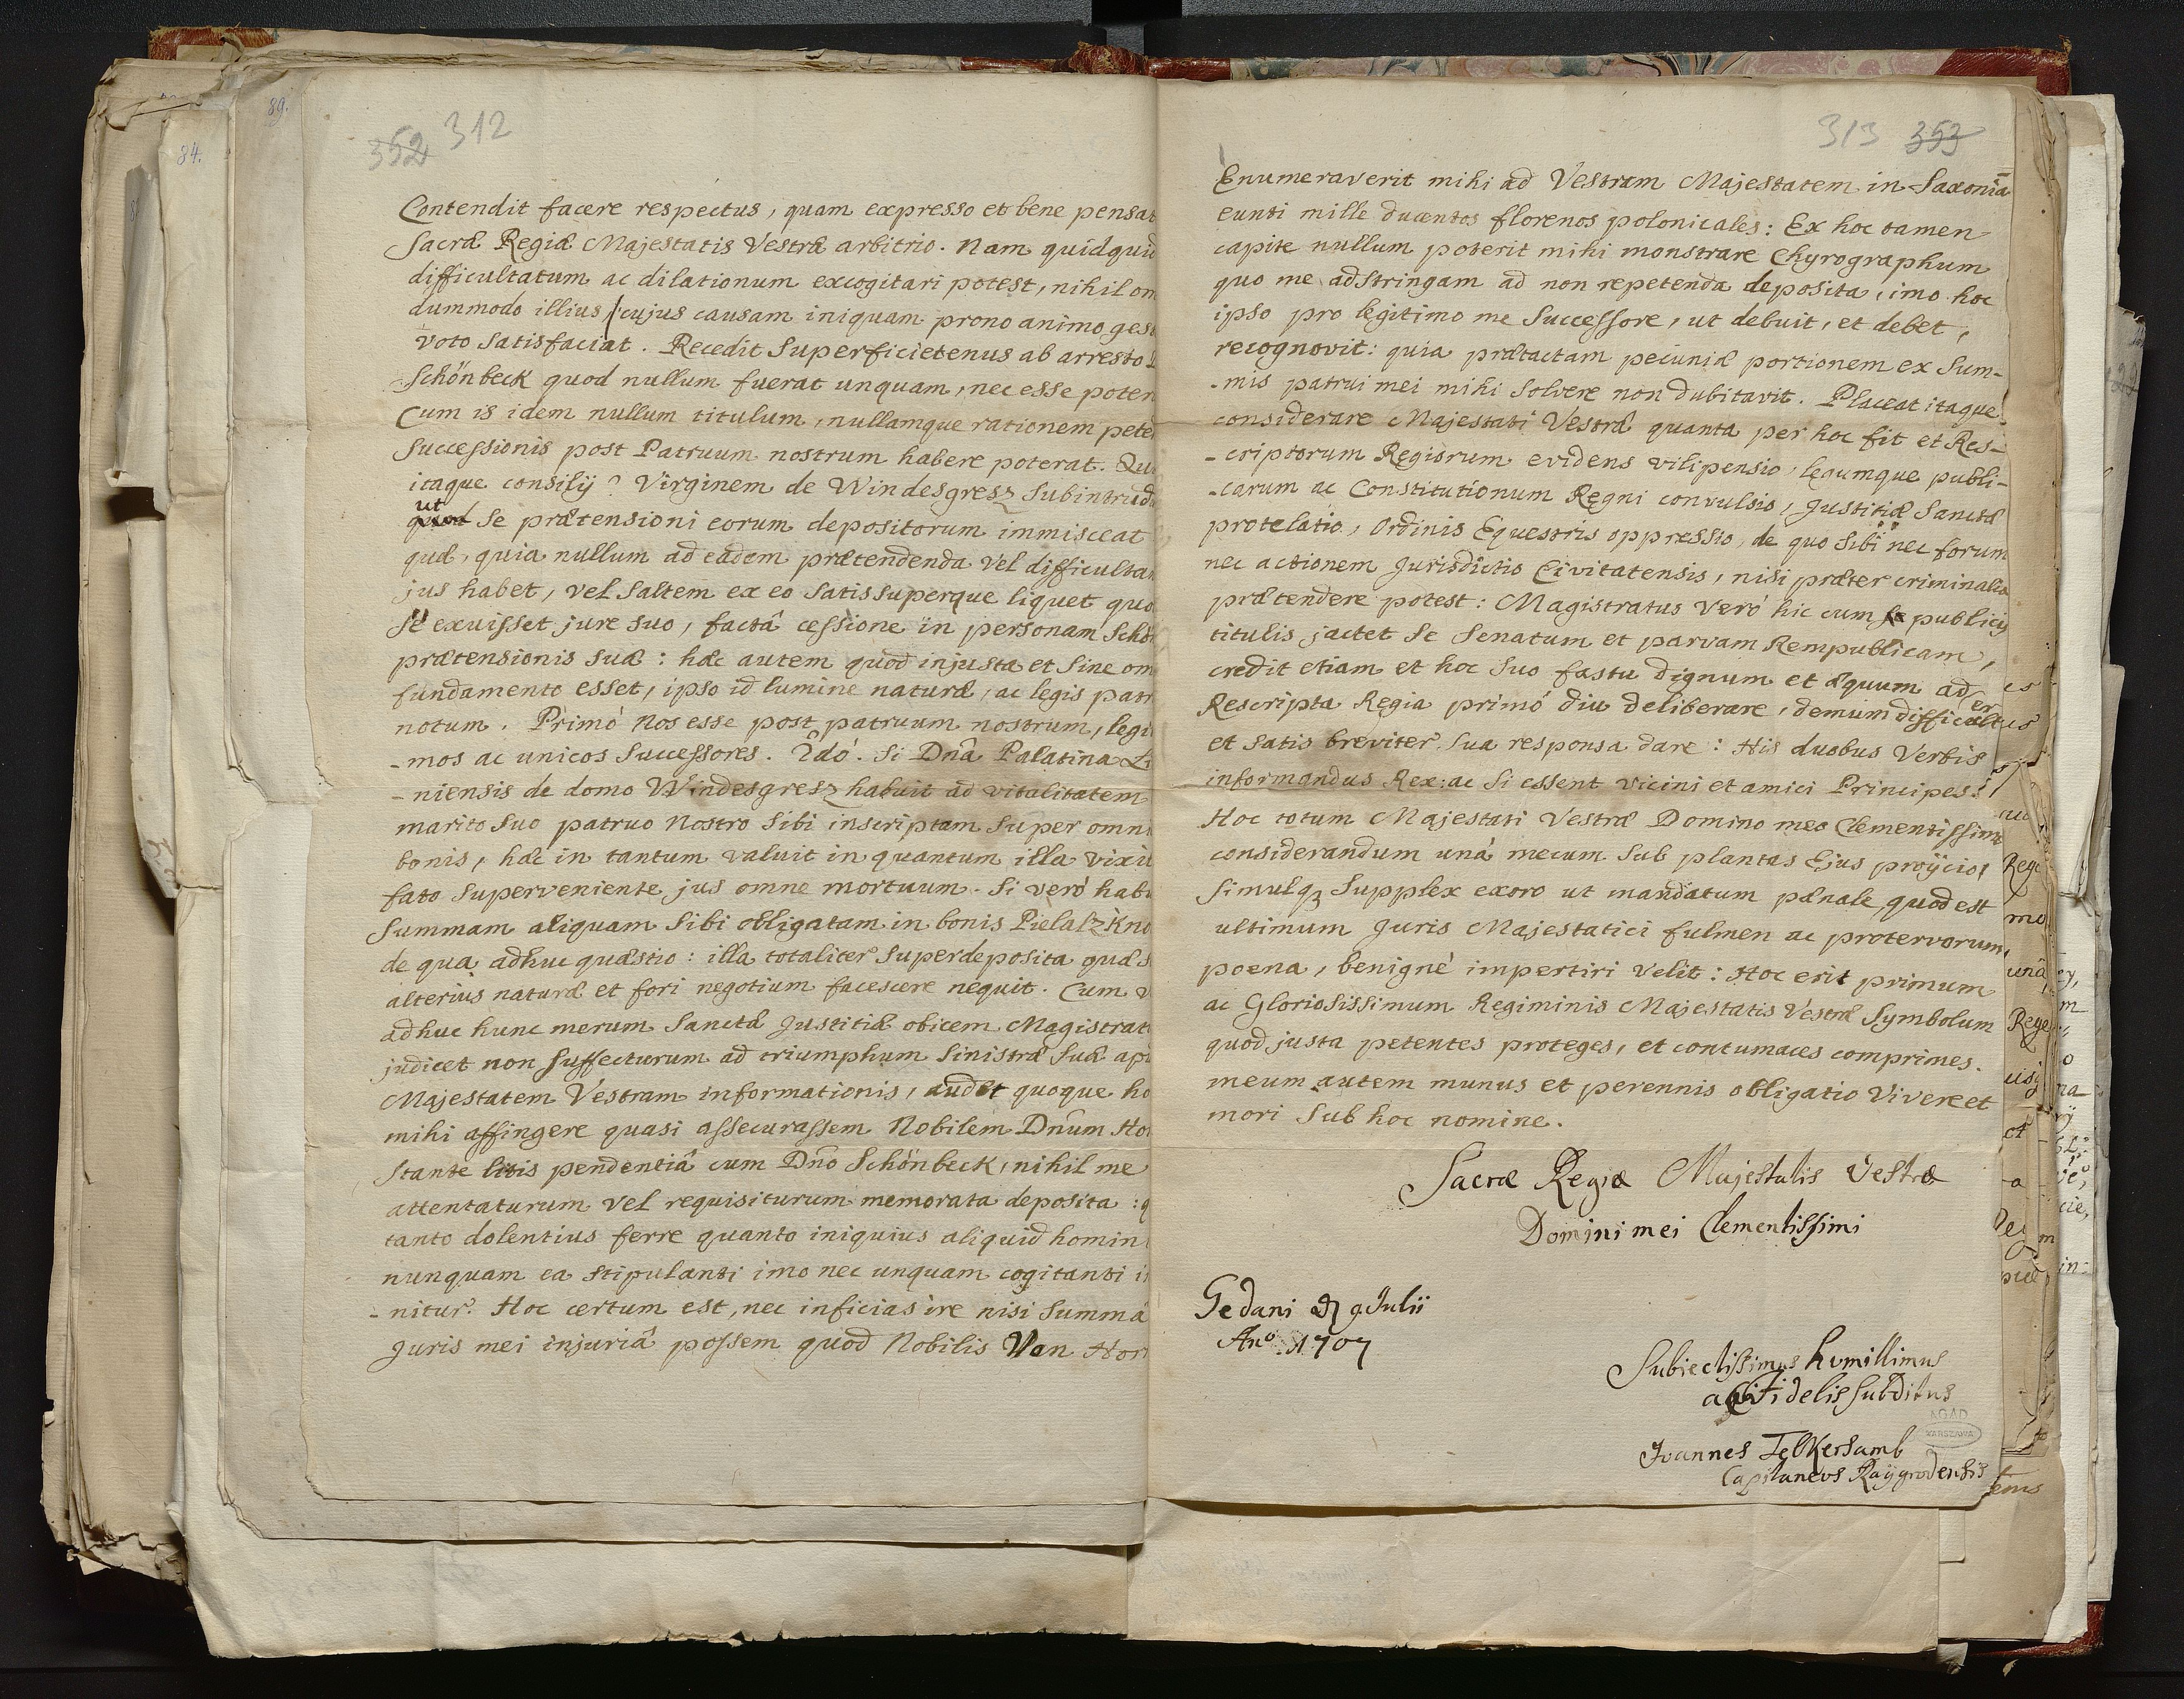 89.
84.
352 312
Contendit facere respectus, quam expresso et bene pensat
Sacræ Regiæ Majestatis Vestræ arbitrio. Nam quidquid
difficultatum ac dilationum excogitari potest, nihil om
dummodo illius /: cujus causam iniquam prono animo gest
voto satisfaciat. Recedit Superficietenus ab arresto
Schönbeck quod nullum fuerat unquam, nec esse poter
Cum is idem nullum titulum, nullamque rationem pete
Successionis post Patruum nostrum habere poterat. Qui
itaque consilij? Virginem de Windesgresz Subintrud
ut
quod se prætensioni eorum depositorum immisceat
quæ, quia nullum ad eadem prætendenda vel difficultan
jus habet, vel Saltem ex eo Satissuperque liquet quo
Se exuisset jure suo, factâ cessione in personam Schö
prætensionis suæ: hæc autem quod injusta et sine om
fundamento esset, ipso id lumine naturæ, ac legis patr
notum. Primò Nos esse post patruum nostrum, legi
-mos ac unicos Successores. 2dò. Si Dna Palatina Li
-niensis de domo Windesgresz habuit ad vitalitatem
marito Suo patruo Nostro Sibi inscriptam Super omni
bonis, hæc in tantum valuit in quantum illa vixit
fato Superveniente, jus omne mortuum. Si verò habu
Summam aliquam Sibi obligatam in bonis Pielaszkno
de qua adhuc quæstio: illa totaliter Superdeposita quæ s
alterius naturæ et fori negotium facescere nequit. Cum v
adhuc hunc merum Sanctæ Justitiæ obicem Magistrat
judicet non suffecturum ad triumphum Sinistræ Suæ apu
Majestatem Vestram informationis, audet quoque ho
mihi affingere quasi assecurassem Nobilem Dnum Hor
stante litis pendentiâ cum Dno Schönbeck, nihil me
attentaturum vel requisiturum memorata deposita: q
tanto dolentius ferre quanto iniquius aliquid homin
nunquam ea stipulanti imo nec unquam cogitanti i
-nitur. Hoc certum est, nec inficias ire nisi Summâ
Juris mei injuriâ possem quod Nobilis Van Hor
313 353
Enumeraverit mihi ad Vestram Majestatem in Saxoniã
eunti mille ducentos florenos polonicales: Ex hoc tamen
capite nullum poterit mihi monstrare Chyrographum
quo me adstringam ad non repetenda deposita, imo hoc
ipso pro legitimo me Successore, ut debuit, et debet,
recognovit: quia prætactam pecuniæ portionem ex Sum-
-mis patrui mei mihi Solvere non dubitavit. Placeat itaque
considerare Majestati Vestræ quanta per hoc fit et Res-
-criptorum Regiorum evidens vilipensio, legumque publi-
-carum ac Constitutionum Regni convulsio, Justitiæ Sanctæ
protelatio, Ordinis Equestris oppressio, de quo Sibi nec forum
nec actionem Jurisdictio Civitatensis, nisi præter criminalia
prætendere potest: Magistratus verò hic cum se publicis
titulis jactet Se Senatum et parvam Rempublicam,
credit etiam et hoc Suo fastu dignum et æquum ad
Rescripta Regia primò diu deliberare, demum difficulter
et satis breviter sua responsa dare: His duobus Verbis
informandus Rex: ac Si essent vicini et amici Principes:
Hoc totum Majestati Vestræ Domino meo Clementissimo
considerandum unà mecum Sub plantas Ejus projicio,
Simulq3 Supplex exoro ut mandatum pænale, quod est
ultimum Juris Majestatici fulmen ac protervorum
poena, benignè impertiri velit: Hoc erit primum
ac Gloriosissimum Regiminis Majestatis Vestræ Symbolum
quod justa petentes proteges, et contumaces comprimes.
meum autem munus et perennis obligatio Vivere et
mori Sub hoc nomine.
Sacræ Regiæ Majestatis Vestræ
Domini mei Clementissimi
Gedani D 9 Julii
Anº 1707
Subiectissimus humillimus
ac Fidelis Subditus
AGAD
WARSZAWA
Joannes Felkersamb
Capitaneus Raygrodensis